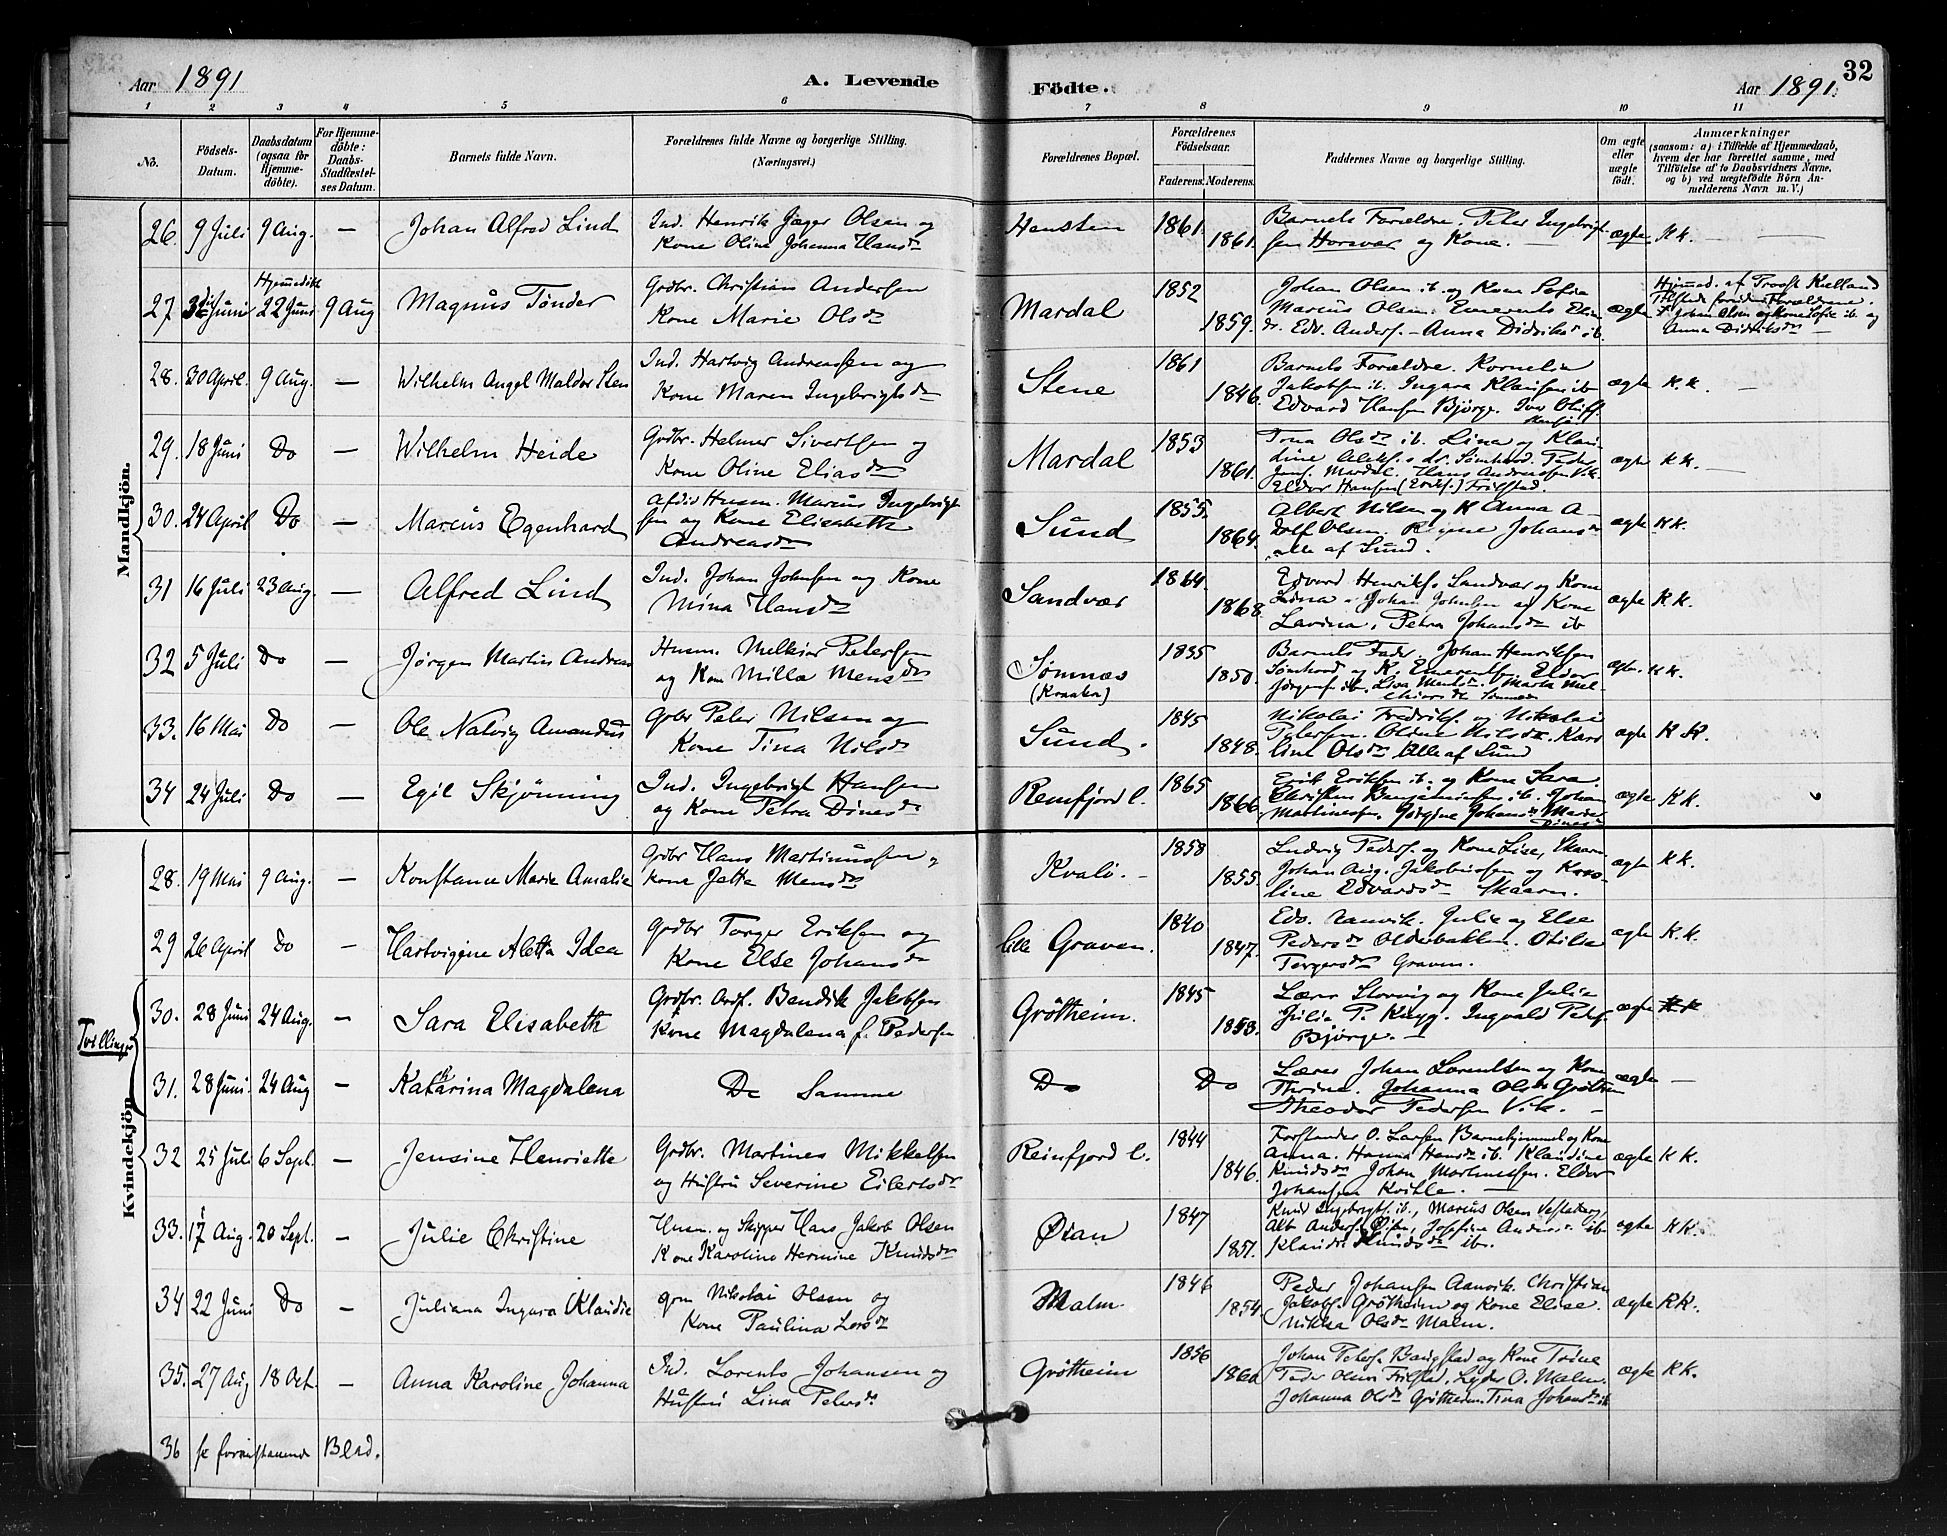 Aar 1891
A. Levende
Födte.
Aar 1891.
32
1 2 3 4 5 6 7 8 9 10 11
No.
Födsels-
Datum.
Daabsdatum
(ogsaa for
Hjemme-
döbte).
For Hjemme-
döbte:
Daabs-
Stadfæstel-
ses Datum.
Barnets fulde Navn.
Forældrenes fulde Navne og borgerlige Stilling.
(Næringsvei.)
Forældrenes Bopæl.
Forældrenes
Födselsaar.
Faderens. Moderens.
Faddernes Navne og borgerlige Stilling.
Om ægte
eller
uægte
födt.
Anmærkninger
(saasom: a) i Tilfælde af Hjemmedaab,
hvem der har forrettet samme, med
Tilföielse af to Daabsvidners Navne,
og b) ved uægtefödte Börn An-
melderens Navn m. V.)
Mandkjön.
26. 9 Juli 9 Aug. — Johan Alfred Lind
Ind. Henrik Jæger Olsen og
Kone Olina Johanna Hansdr
1861. 1861.
Barnets Forældre. Peter Ingebrigt-
sen Horsvær og Kone.
ægte KK. —
27 Juni
Hjemmedøbt
22 Juni 9 Aug Magnus Tönder
Grdbr. Christian Andersen
Kone Marie Olsdr
Mardal 1852 1859.
Johan Olsen ib. og Kone Sofie
Marcus Olsen.
Edv. Anders. – Anna Didriksdr ib.
ægte
Hjemmed. af Troost Kielland
Johan Olsen og Kone Sofie ib. og
Anna Didriksdr —
28. 30 April. 9 Aug. — Wilhelm Angel Maldor Sten
Ind. Hartvig Andreassen og
Kone Maren Ingebrigtsdr
Stene 1861 1846.
Barnets Forældre. Kornelia
Jakobsen ib. Ingara Klausen ib
Edvard Hansen Björge.
ægte K.K. —
29. 18 Juni Do — Wilhelm Heide
Grdbr. Helmer Sivertsen og
Kone Oline Eliasdr
Mardal 1853 1861.
Trina Olsdr ib. Lina og Klau-
dine
Mardal. Hans Andreassen Vik.
Eldor Hansen (Eriks.) Frilstad.
ægte KK. —
30. 24 April Do — Marcus Egenhard
Husm. Marcus Ingebrigt
sen og Kone Elisabeth
Andreasdr
Sund 1855. 1864.
Albert Nilsen og K Anna A-
dolf Olsen. Johansdr
alle af Sund.
ægte KK.
31 16 Juli 23 Aug. — Alfred Lind
Ind. Johan Johnsen og Kone
Mina Hansdr
Sandvær 1864. 1868.
Edvard Henriks. Sandvær og Kone
Johan Johnsen og Kone
Lavina, Petra Johansdr ib
ægte KK.
32 5 Juli Do — Jørgen Martin Andreas
Husm. Melkior Petersen
og Kone Milla Mensdr
Sømnæs
(Kraaka)
1855 1850.
Barnets Fader. Johan Henriksen
Sømhovd og K. Emerentse Eldor
ægte. KK.
33. 16 Mai Do — Ole Natvig Amandus
Grbr Peter Nilsen og
Kone Tina Nilsdr
Sund. 1845 1848.
Nikolai Fredriks. og Nikolai
Petersen. Oldine Nilsdr. Karo
line Olsdr Alle af Sund
ægte K.K.
34 24 Juli Do — Egil Skjönning
Ind. Ingebrigt Hansen
og Kone Petra Dinesdr
Reinfjord l. 1865 1866.
Erik Eriksen ib. og Kone Sara
Christen Benjaminsen ib. Johan
Martinessen. Jørgine Johansdr Marie
Dinesdr
ægte KK.
Kvindekjön.
28. 19 Mai 9 Aug. — Konstance Marie Amalie
Grdbr Hans Martinussen
Kone Jetta Mensdr
Kvalö. – 1858 1855.
Ludvig Peders. og Kone Lise, Skaarn.
Johan Aug. Jakobsen og Karo-
line Edvardsdr Skaarn.
ægte KK.
29 26 April Do — Hartvigine Aletta Idea
Grdbr Torger Eriksen og
Kone Else Johansdr
lille Graven. 1840 1847.
Edv. Aanvik. Julie og Else
Pedersdr Olderbakken. Otilie
Torgersdr Graven.
ægte K.K.
Tvillinger
30. 28 Juni 24 Aug. — Sara Elisabeth
Grdbr. Ordf. Bendik Jakobsen
Kone Magdalena f. Pedersen
Grötheim. 1845 1853.
Lærer Storvig og Kone Julie
Julia P. Krigg. Ingvald Peters.
Björge. —
ægte KK
31. 28 Juni 24 Aug — Katharina Magdalena
Do Samme
Do Do
Lærer Johan Lorentsen og Kone
Thrine. Johanna Olsdr Grötheim
Theodor Pedersen Vik. —
ægte —
32 25 Juli 6 Sept. — Jensine Henriette
Grdbr. Martines Mikkelsen
og Hustru Severine Eilertsdr
Reinfjord l. 1844 1846.
Forstander O. Larsen Barnehjemmet og Kone
Anna. Hanna Hansdr ib. Klaudine
Knudsdr Johan Martinessen. Eldor
Johansen Kvitle. —
ægte KK.
33. 17 Aug. 20 Sept. — Julie Christine
Husm. og Skipper Hans Jakob Olsen
Kone Karoline Hermine Knudsdr
Øian 1847 1851.
Knud Ingebrigts. ib., Marius Olsen Vesteraas
Alb. Anders. Øien, Josefine Andersdr ib
Klaudi Knudsdr ib.
ægte KK.
34 22 Juni Do — Juliana Ingara Klaudie
Nikolai Olsen og
Kone Paulina Larsdr
Malm. 1846 1854.
Peder Johansen Aanvik. Christian
Jakobs. Grötheim og Kone Elise.
Nikka Olsdr Malm.
ægte KK.
35. 27 Aug 18 Oct. — Anna Karoline Johanna
Ind. Lorents Johansen og
Hustru Lina Petersdr
Grötheim 1856 1860
Johan Peters. Baugstad og Kone Trine
Peder Olsen Frilstad, Lyder O. Malm.
Johanna Olsdr Grötheim Tina Johansdr ib
ægte KK.
36 se foranstaaende Blad.